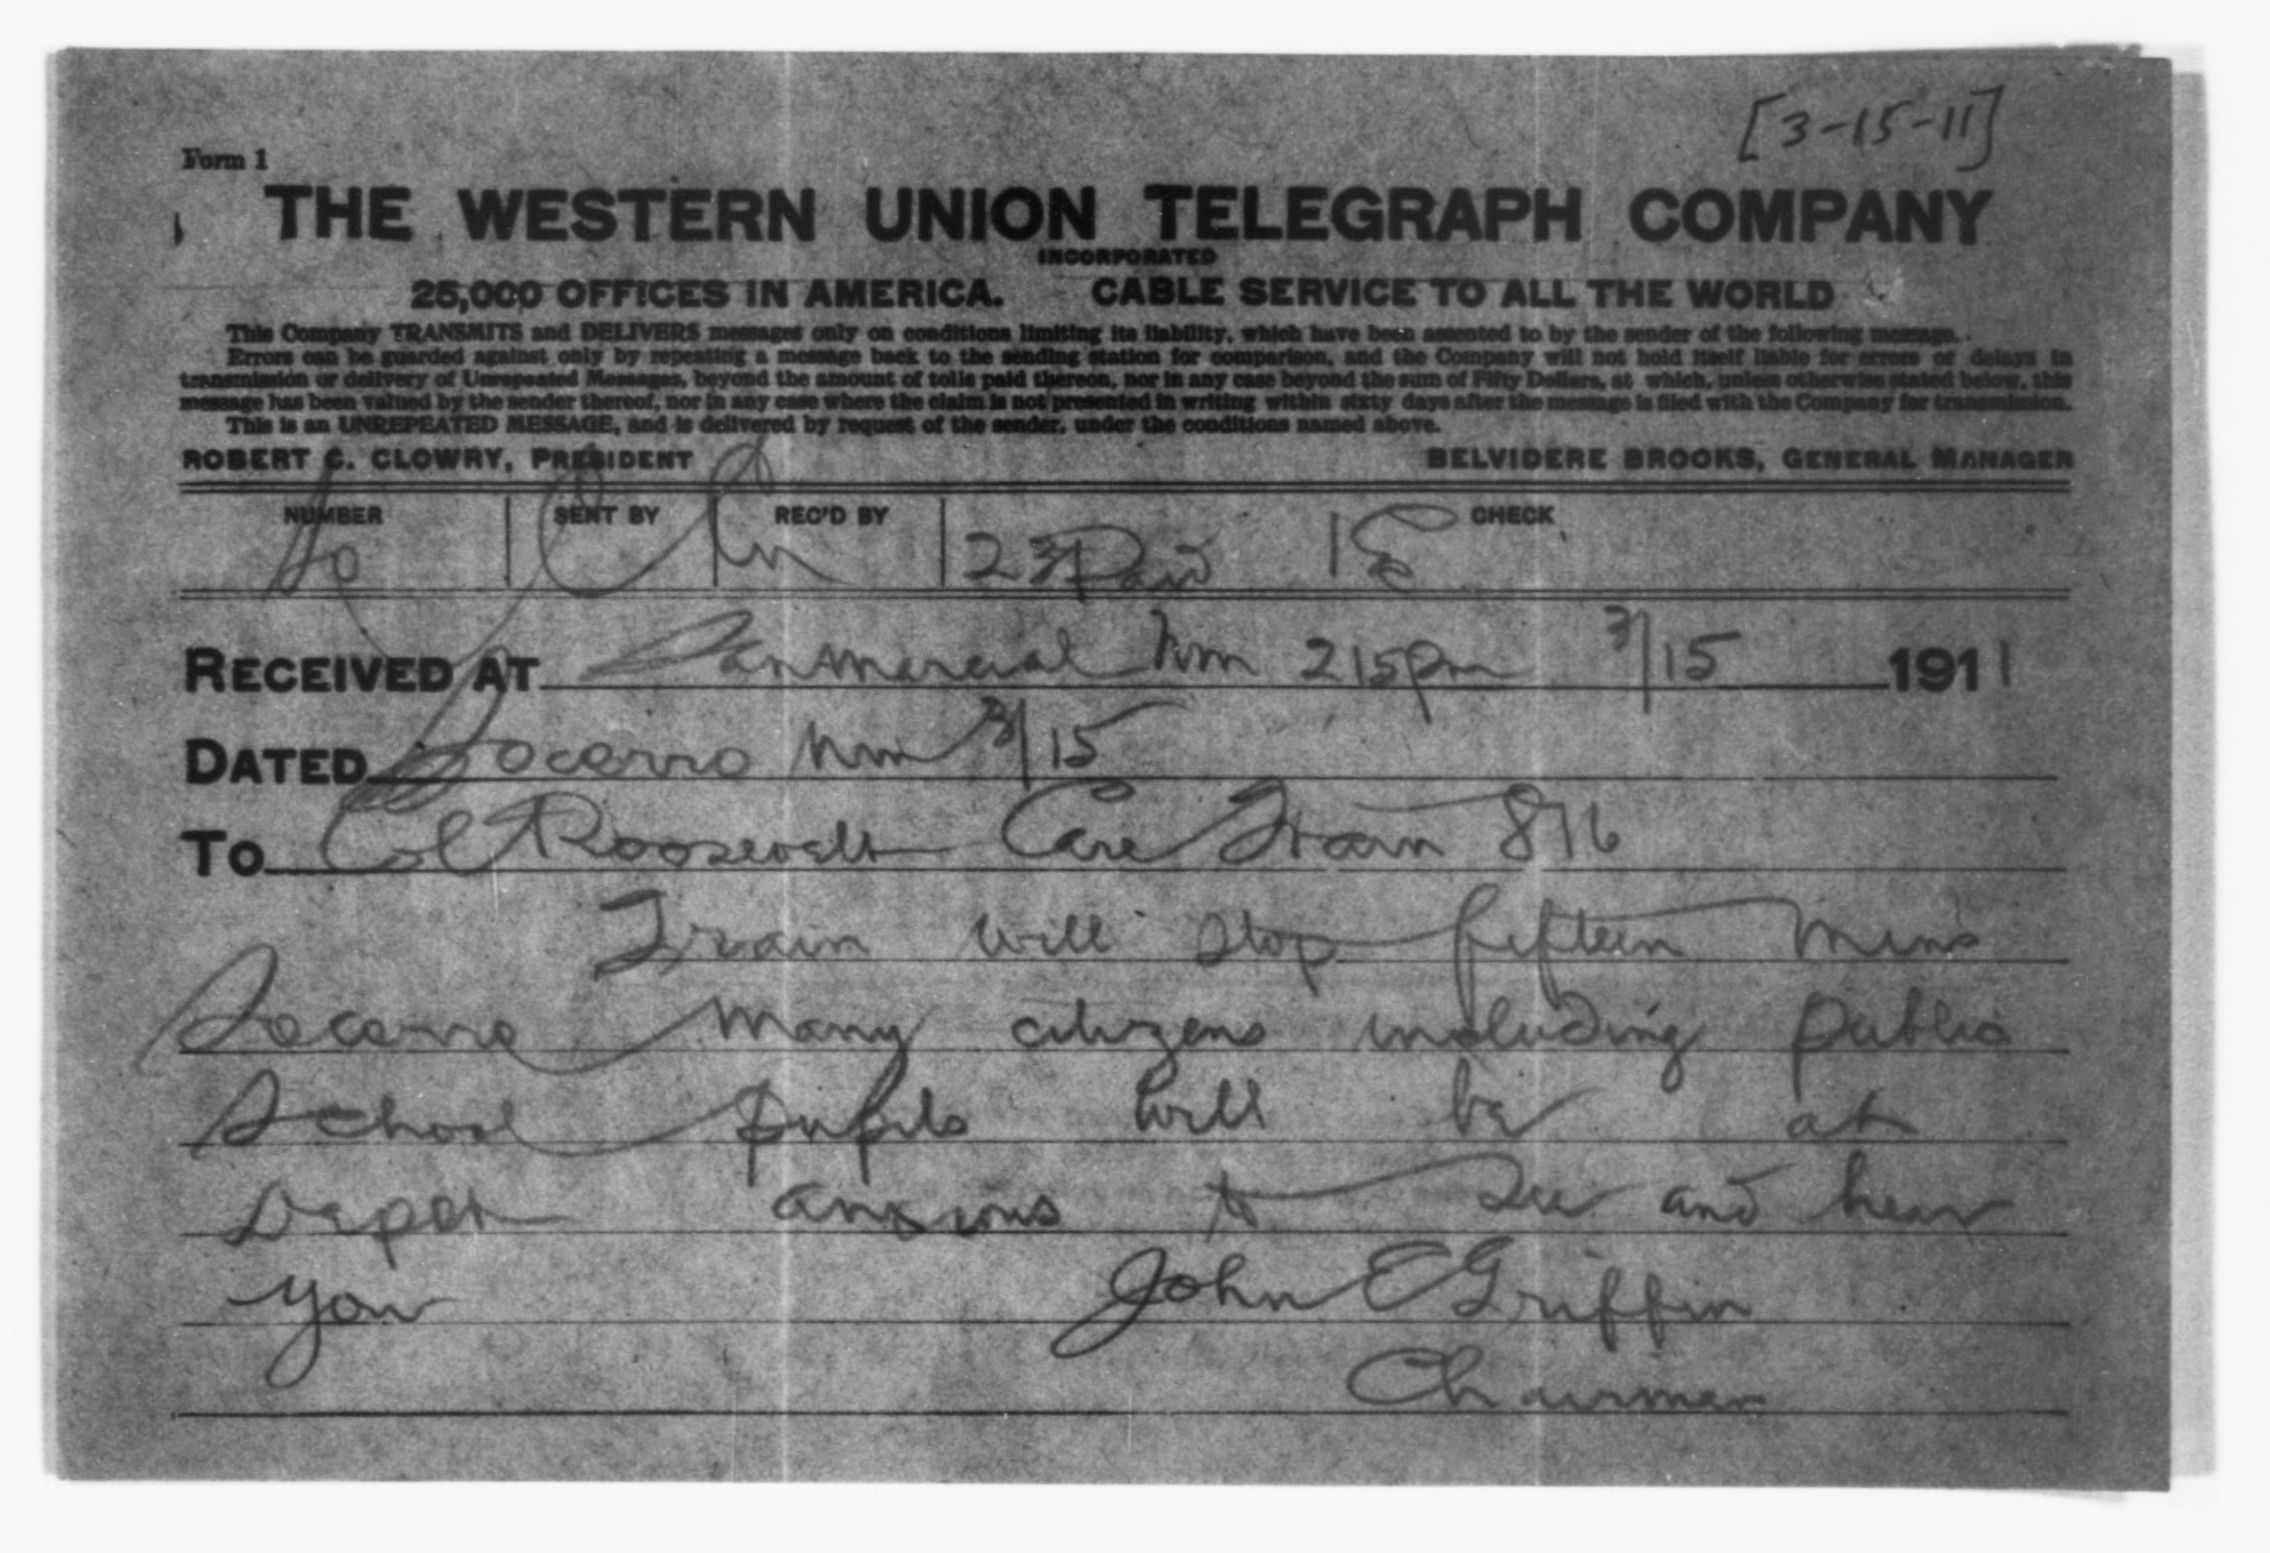 [3-15-11]
Form 1
THE WESTERN UNION TELEGRAPH COMPANY
INCORPORATED
25,000 OFFICES IN AMERICA. CABLE SERVICE TO ALL THE WORLD
This Company TRANSMITS and DELIVERS messages only on conditions limiting its liability, which have been assented to by the sender of the following message.
Errors can be guarded against only by repeating a message back to the sending station for comparison, and the Company will not hold itself liable for errors or delays in
transmission or delivery of Unrepeated Messages, beyond the amount of tolls paid thereon, nor in any case beyond the sum of Fifty Dollars, at which, unless otherwise stated below, this
message has been valued by the sender thereof, nor in any case where the claim is not presented in writing within sixty days after the message is filed with the Company for transmission.
This is an UNREPEATED MESSAGE, and is delivered by request of the sender, under the conditions named above.
ROBERT C. CLOWRY, PRESIDENT BELVIDERE BROOKS, GENERAL MANAGER
NUMBER SENT BY REC'D BY CHECK
23 Paid
RECEIVED AT San Marcial NM 215pm 3/15 1911
DATED Socorro NM 3/15
To Col Roosevelt Care Train 816
Train will stop fifteen mins
Socorro Many citizens including public
School pupils will be at
Depot anxious to see and hear
you John E Griffin
Chairman